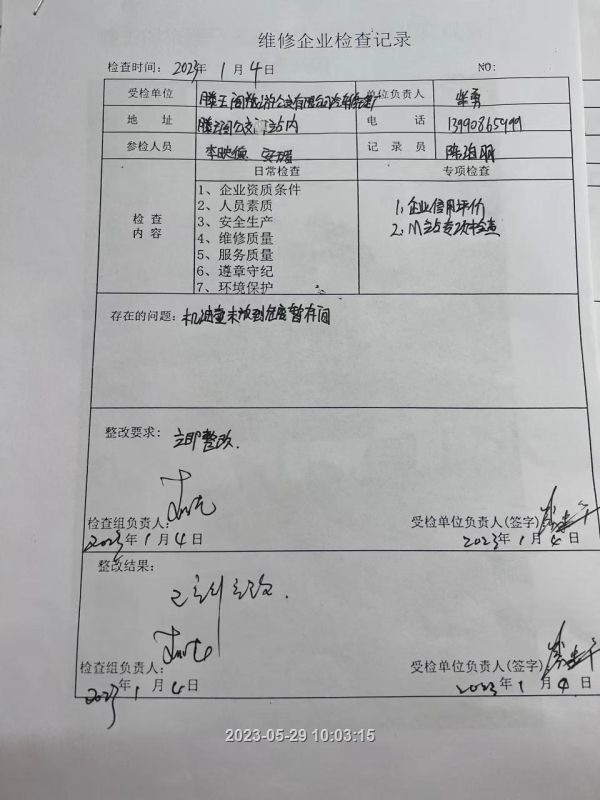 维修企业检查记录
检查时间: 2023年 1 月 4 日 NO:
受检单位 滕王阁旅游公交有限公司汽车修理厂 单位负责人
地 址 滕阁公交 站内 电 话 13990865499
参检人员 李映俭 记 录 员 陈泊朋
日常检查 专项检查
检 查
内 容
1、企业资质条件
2、人员素质
3、安全生产
4、维修质量
5、服务质量
6、遵章守纪
7、环境保护
1、企业信用评价
2、M站专项检查
存在的问题: 机油壶未放到危废暂存间
整改要求: 立即整改.
检查组负责人:
2023年 1 月 4 日
受检单位负责人(签字)
2023年 1 月 4 日
整改结果:
检查组负责人:
2023年 1 月 4 日
受检单位负责人(签字)
2023年 1 月 4 日
2023-05-29 10:03:15